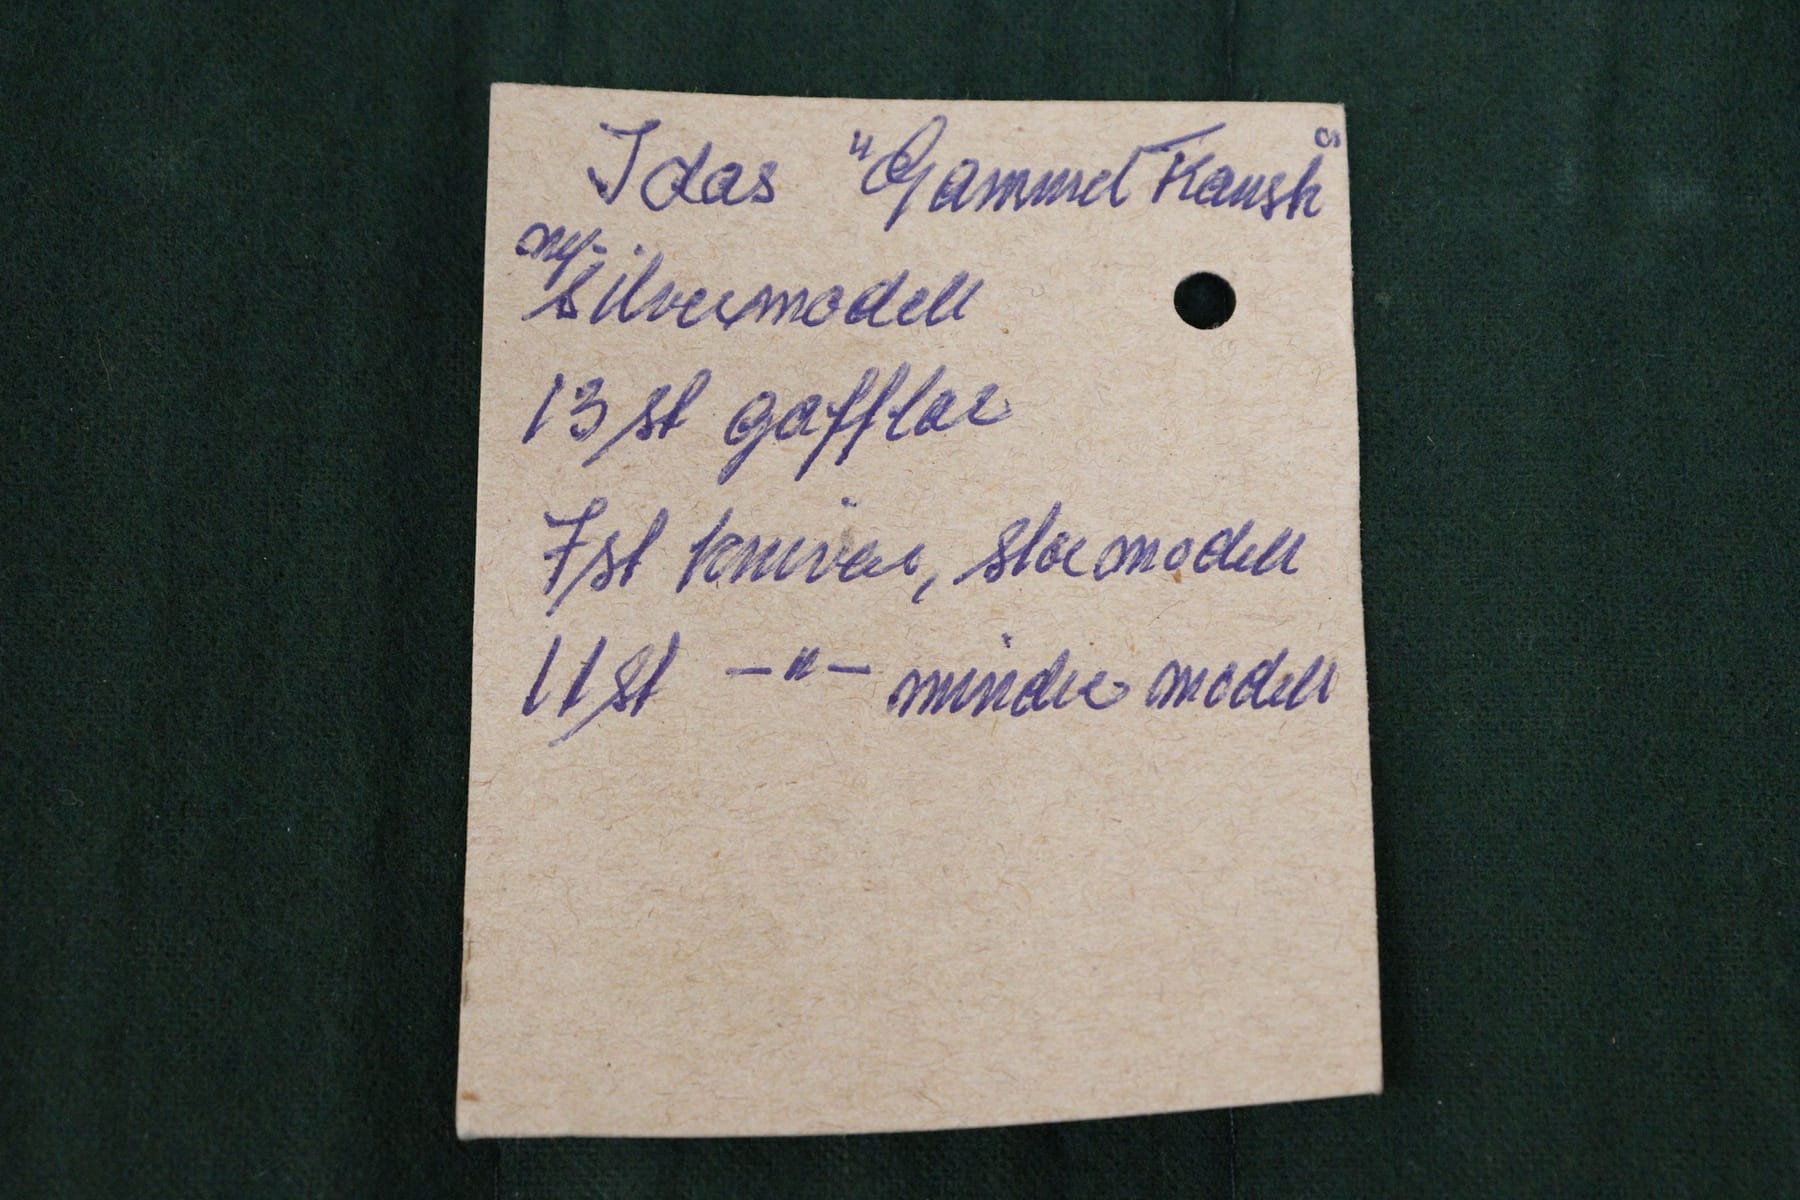 Idas "Gammel Kansk"
ny-
silvermodell
13 st gafflar
7 st knivar, stor modell
11 st —"— mindre modell